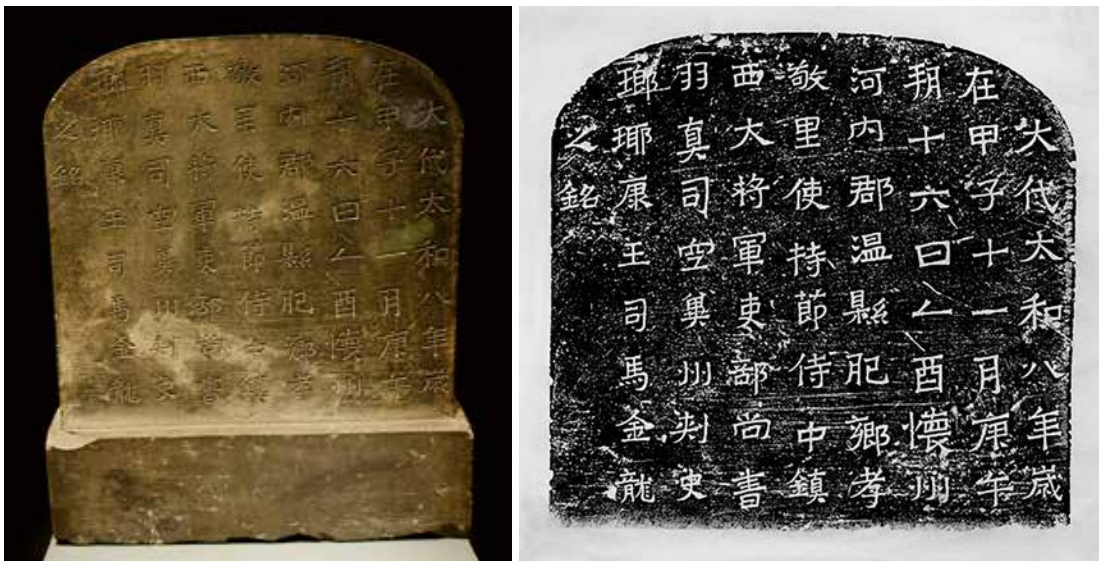 大代太和八年歲
在甲子十一月庚午
朔十六日乙酉懷州
河内郡温縣肥鄉孝
敬里使持節侍中鎮
西大將軍吏部尚書
羽真司空冀州刺史
瑯琊康王司馬金龍
之銘
大代太和八年歲
在甲子十一月庚午
朔十六日乙酉懷州
河内郡温縣肥鄉孝
敬里使持節侍中鎮
西大將軍吏部尚書
羽真司空冀州刺史
瑯琊康王司馬金龍
之銘